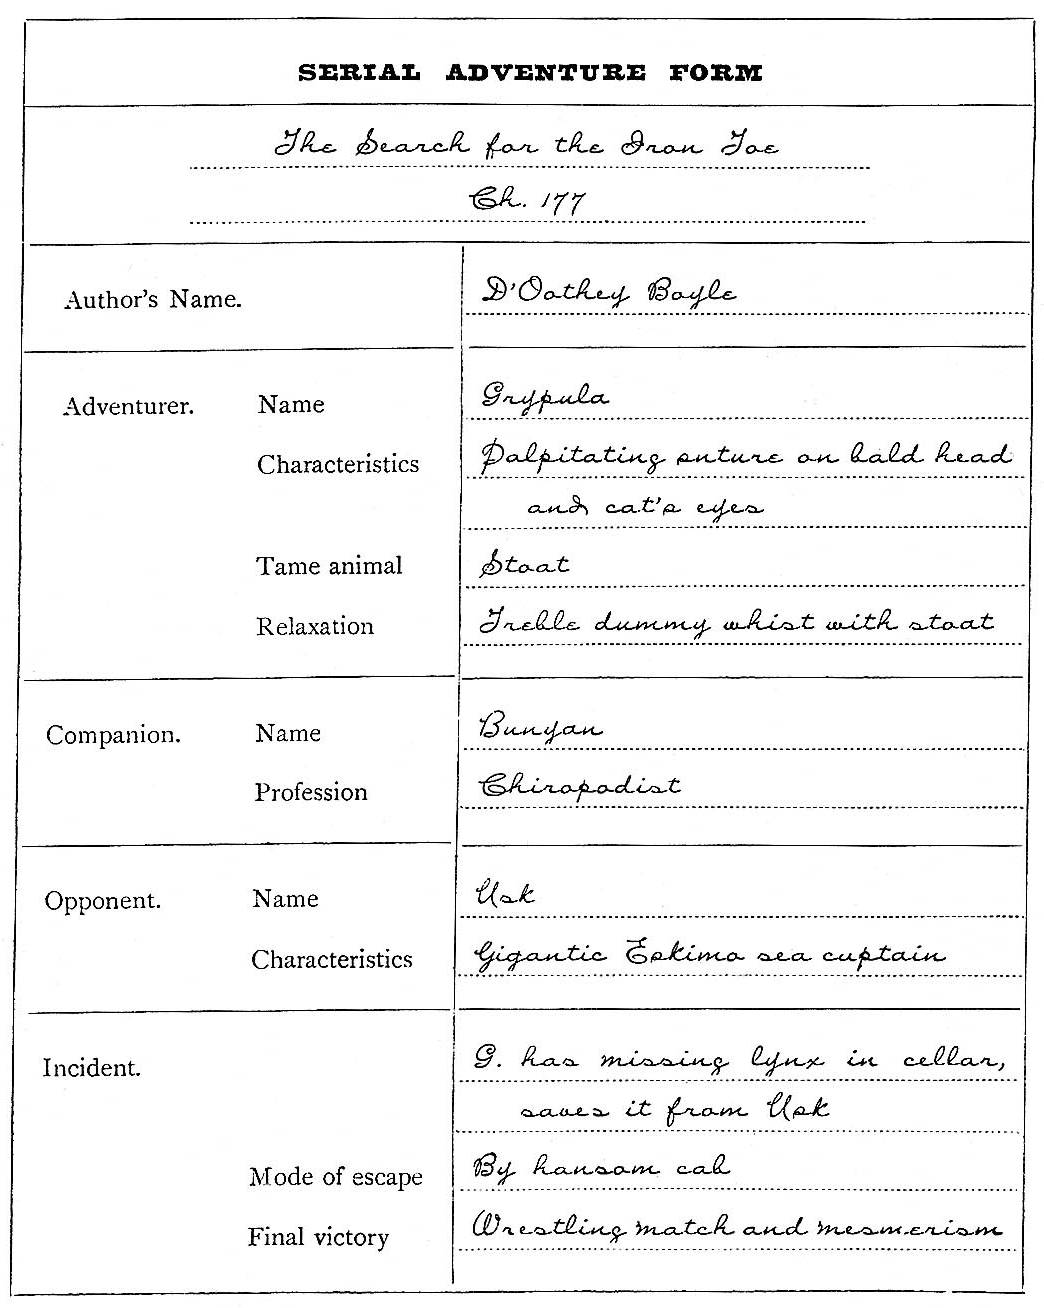 SERIAL ADVENTURE FORM
The Search for the Iron Toe
Ch. 177
Author's Name. D'Oathey Boyle
Adventurer. Name Grypula
Characteristics Palpitating suture on bald head
and cat's eyes
Tame animal Stoat
Relaxation Treble dummy whist with stoat
Companion. Name Bunyan
Profession Chiropodist
Opponent. Name Usk
Characteristics Gigantic Eskimo sea captain
Incident. G. has missing lynx in cellar,
saves it from Usk
Mode of escape By hansom cab
Final victory Wrestling match and mesmerism